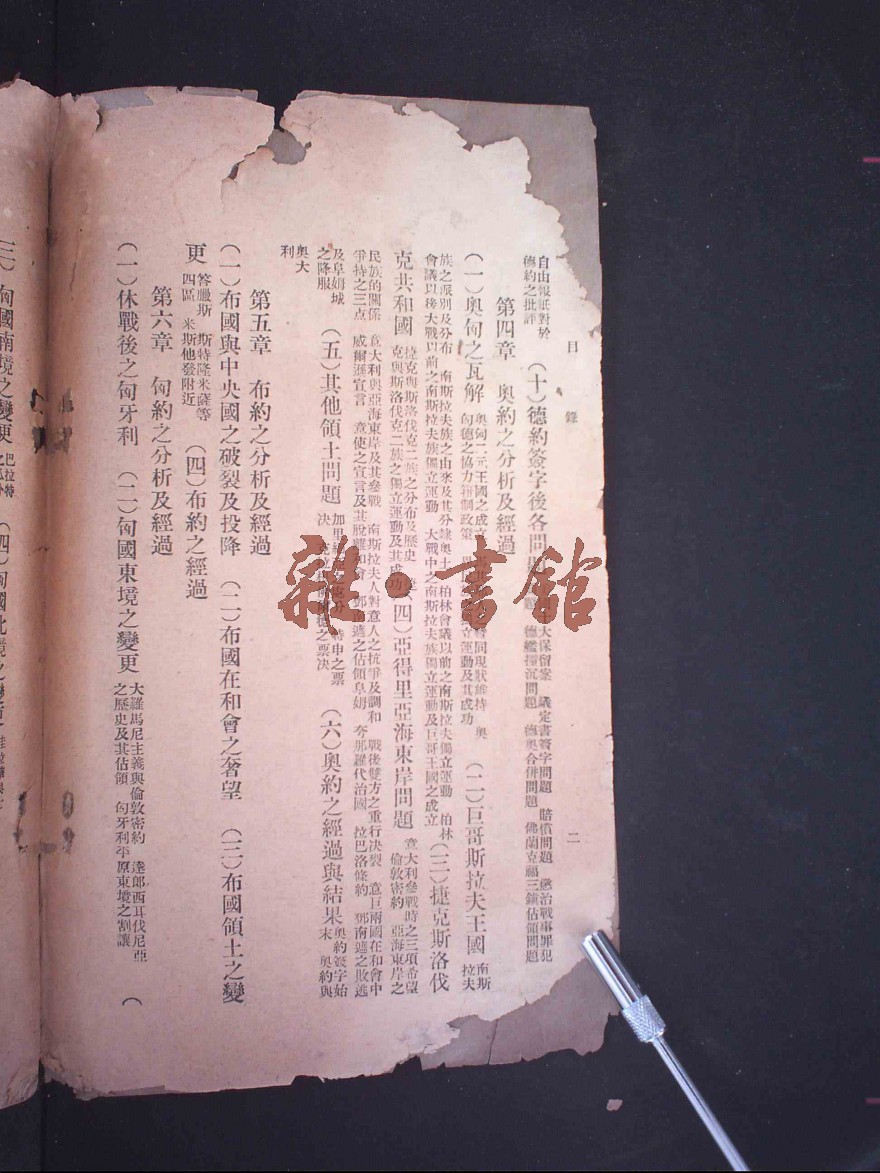 目錄
二
自由報紙對於
德約之批評
(十)德約簽字後各問題
大保留案 議定書簽字問題 賠償問題 懲治戰事罪犯
德艦擅沉問題 德奧合併問題 佛蘭克福三鎮佔領問題
第四章 奧約之分析及經過
(一)奧匈之瓦解
奧匈二元王國之成立 同現狀維持 奧
匈德之協力箝制政策 立運動及其成功
(二)巨哥斯拉夫王國
南斯
拉夫
族之派別及分布 南斯拉夫族之由來及其分隸奧土 柏林會議以前之南斯拉夫獨立運動 柏林
會議以後大戰以前之南斯拉夫族獨立運動 大戰中之南斯拉夫族獨立運動及巨哥王國之成立
(三)捷克斯洛伐
克共和國
捷克與斯洛伐克二族之分布及歷史
克與斯洛伐克二族之獨立運動及其成功
(四)亞得里亞海東岸問題
意大利參戰時之三項希望
倫敦密約 亞海東岸之
民族的關係 意大利與亞海東岸及其參戰 南斯拉夫人對意人之抗爭及調和 戰後雙方之重行決裂 意巨兩國在和會中
爭持之三点 威爾遜宣言 意使之宣言及其脫離和會 鄧南遮之佔領阜姆 夸那羅代治國 拉巴洛條約 鄧南遮之敗逃
及阜姆城
之降服
(五)其他領土問題
加里 特申之票
決 之票决
(六)奧約之經過與結果
奧約簽字始
末 奧約與
奧大
利
第五章 布約之分析及經過
(一)布國與中央國之破裂及投降 (二)布國在和會之奢望 (三)布國領土之變
更
答臘斯 斯特隆米薩等
四區 米斯他發附近
(四)布約之經過
第六章 匈約之分析及經過
(一)休戰後之匈牙利 (二)匈國東境之變更
大羅馬尼主義與倫敦密約 達郎西耳伐尼亞
之歷史及其佔領 匈牙利平原東境之割讓
(
三)匈國南境之變更
巴拉特
(四)匈國北境之變更
雜·書館